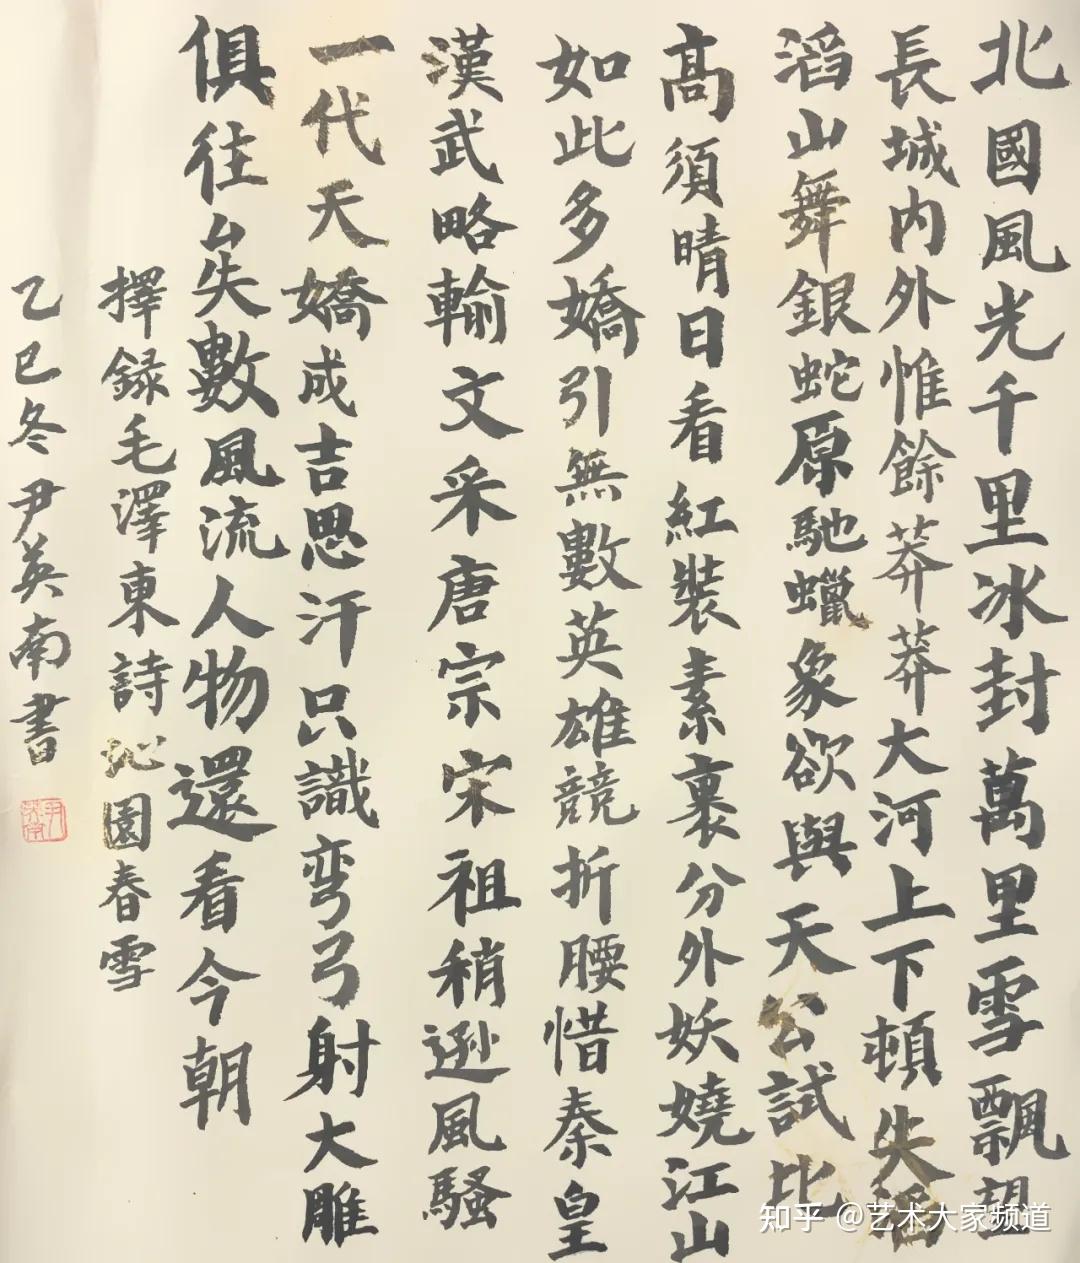 北國風光千里冰封萬里雪飄望
長城内外惟餘莽莽大河上下頓失滔
滔山舞銀蛇原馳蠟象欲與天公試比
高須晴日看紅裝素裹分外妖嬈江山
如此多嬌引無數英雄競折腰惜秦皇
漢武略輸文采唐宗宋祖稍遜風騷
一代天嬌成吉思汗只識弯弓射大雕
俱往矣數風流人物還看今朝
擇録毛澤東詩沁園春雪
乙巳冬尹英南書
尹英南
知乎 @艺术大家频道